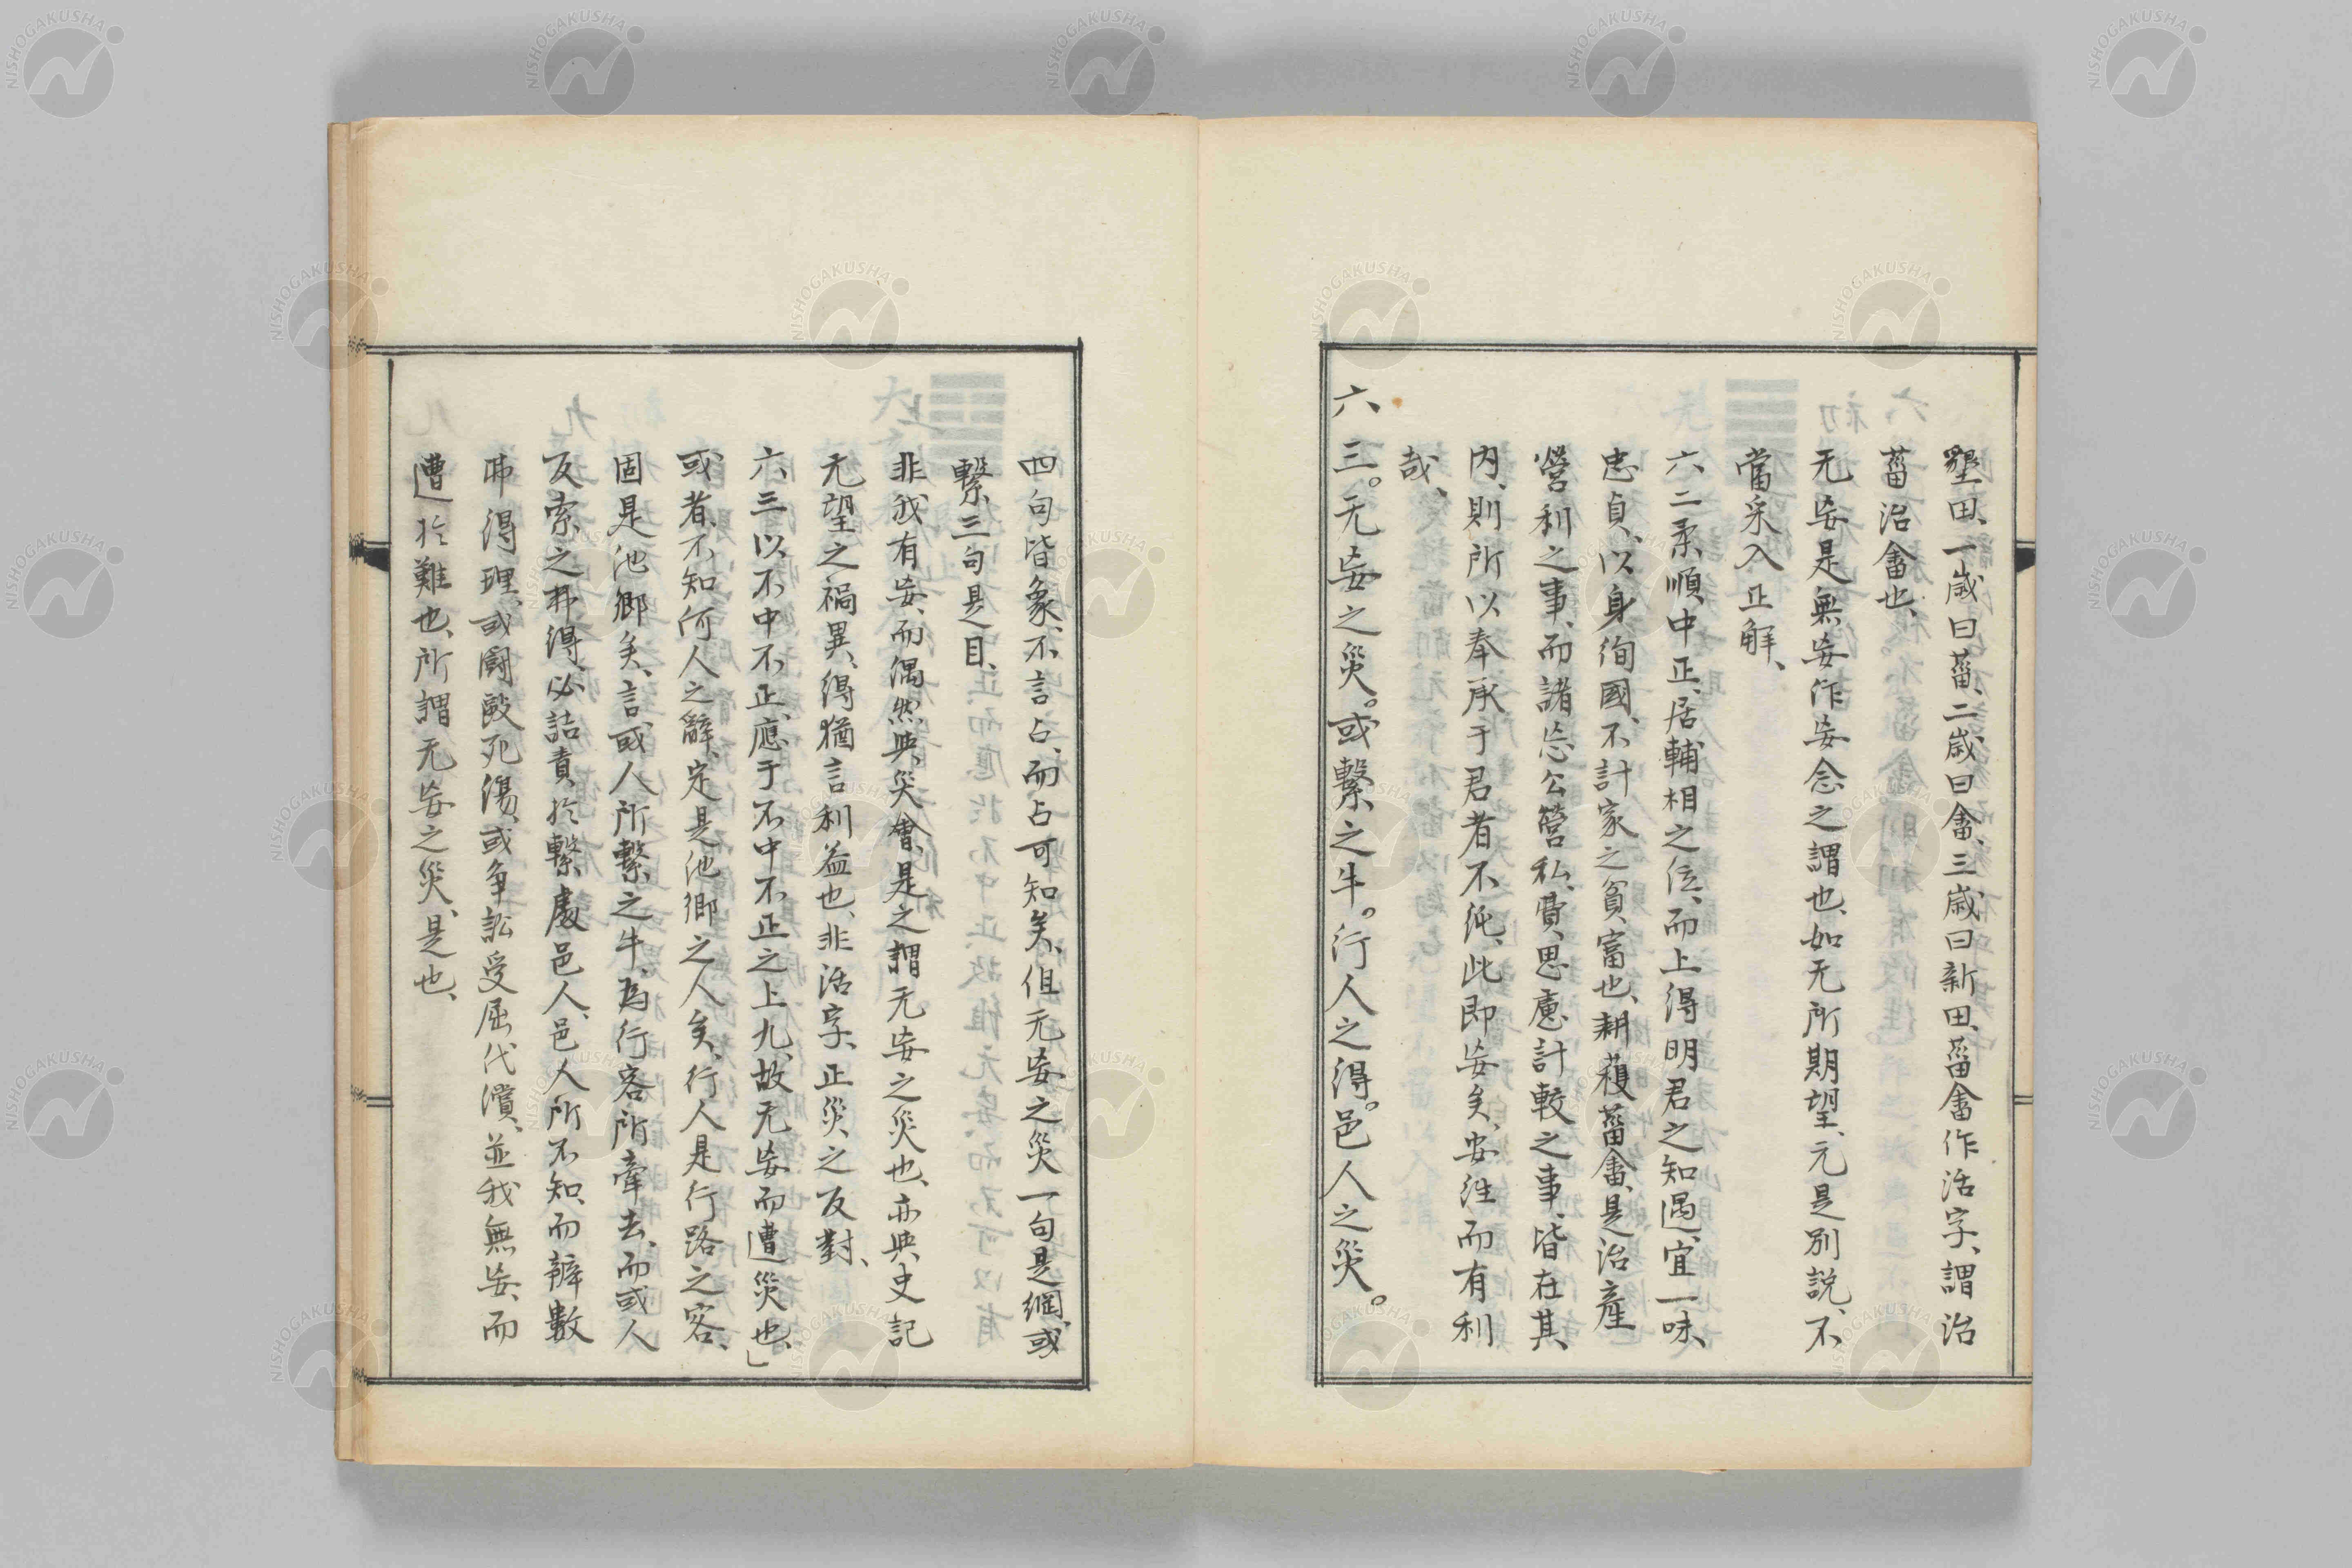 墾田、一歳曰菑、二歳曰畬、三歳曰新田、菑畬作活字、謂治
菑治畬也、
无妄是無妄作妄念之謂也、如无所期望、元是別説、不
當采入正解、
六二柔順中正、居輔相之位、而上得明君之知遇、宜一味
忠貞、以身徇國、不計家之貧富也、耕穫菑畬是治產
營利之事、而諸忘公營私、費思慮計較之事、皆在其
内、則所以奉承于君者不純、此即妄矣、安往而有利
哉、
六三。无妄之災。或繫之牛。行人之得。邑人之災。
四句皆象、不言占、而占可知矣、但无妄之災一句是綱、或
繫三句是目、
非我有妄、而偶然與災會、是之謂无妄之災也、亦與史記
无望之禍異、得猶言利益也、非活字、正災之反對、
六三以不中不正、應于不中不正之上九、故无妄而遭災也、」
或者、不知何人之辭、定是他鄉之人矣、行人是行路之客、
固是他鄉矣、言或人所繫之牛、為行客所牽去、而或人
反索之弗得、必詰責於繫處邑人、邑人所不知、而辨數
弗得理、或鬪毆死傷、或爭訟受屈代償、並我無妄、而
遭於難也、所謂无妄之災、是也、
NISHOGAKUSHA